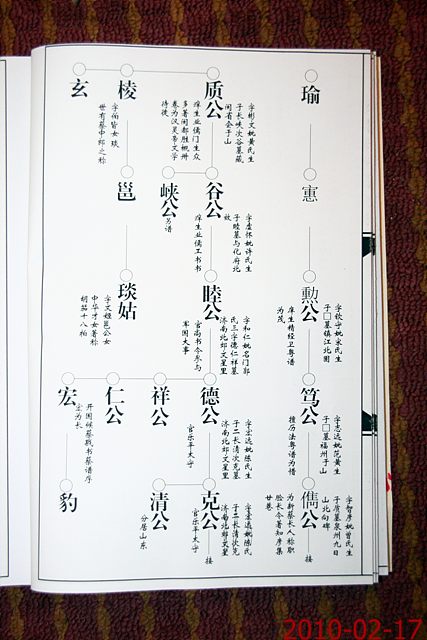 瑜
憲
勲公
字钦守妣宋氏生
子□墓镇江北圌
庠生精经卫粤谱
为茂
笃公
字志远妣范黄生
子□墓福州于山
擅历法粤谱为惜
儁公
字智彦妣曾氏生
子质墓泉州九日
山北向碑
为新蔡长人称职
脸长今著知彦集
廿卷
接
质公
字彬文妣黄氏生
子长峡次谷墓藏
闽省会于山
庠生业儒门生众
多著闽都胜概卅
卷为汉灵帝文学
待徒
谷公
字虚怀妣许氏生
子睦墓与化府北
放
庠生业儒工书书
睦公
字和仁妣名门郭
氏三字德仁祥墓
济南北郊文星里
官尚书令参与
军国大事
德公
字宏远妣陈氏生
子二长清次克墓
济南北郊文星里
官乐平太守
克公
妣陈氏
子二长清次克
济南北郊文星
官乐平太守
接
峡公
另谱
祥公
清公
分居山东
棱
字伯皆女琰
世有蔡中郎之称
邕
琰姑
字文姬邕公女
中华才女著称
胡笳十八拍
仁公
玄
宏
开国候蔡戭书蔡谱序
宏为长
豹
2010-02-17